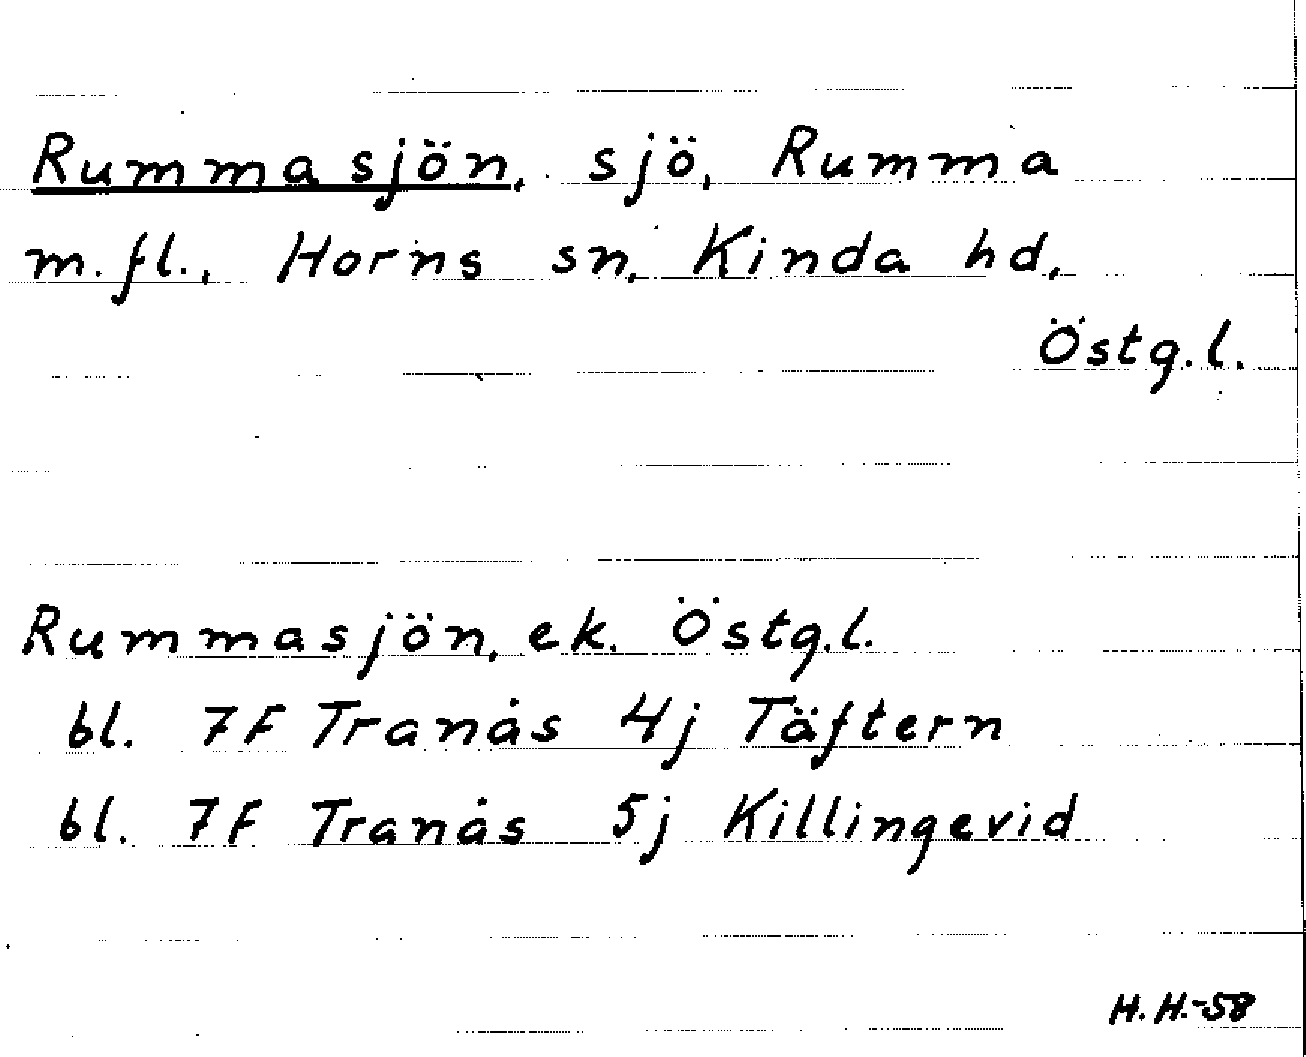 Rummasjön, sjö, Rumma
m.fl., Horns sn, Kinda hd,
Östg.l.
Rummasjön, ek. Östg.l.
bl. 7F Tranås 4j Täftern
bl. 7F Tranås 5j Killingevid
H.H.-58